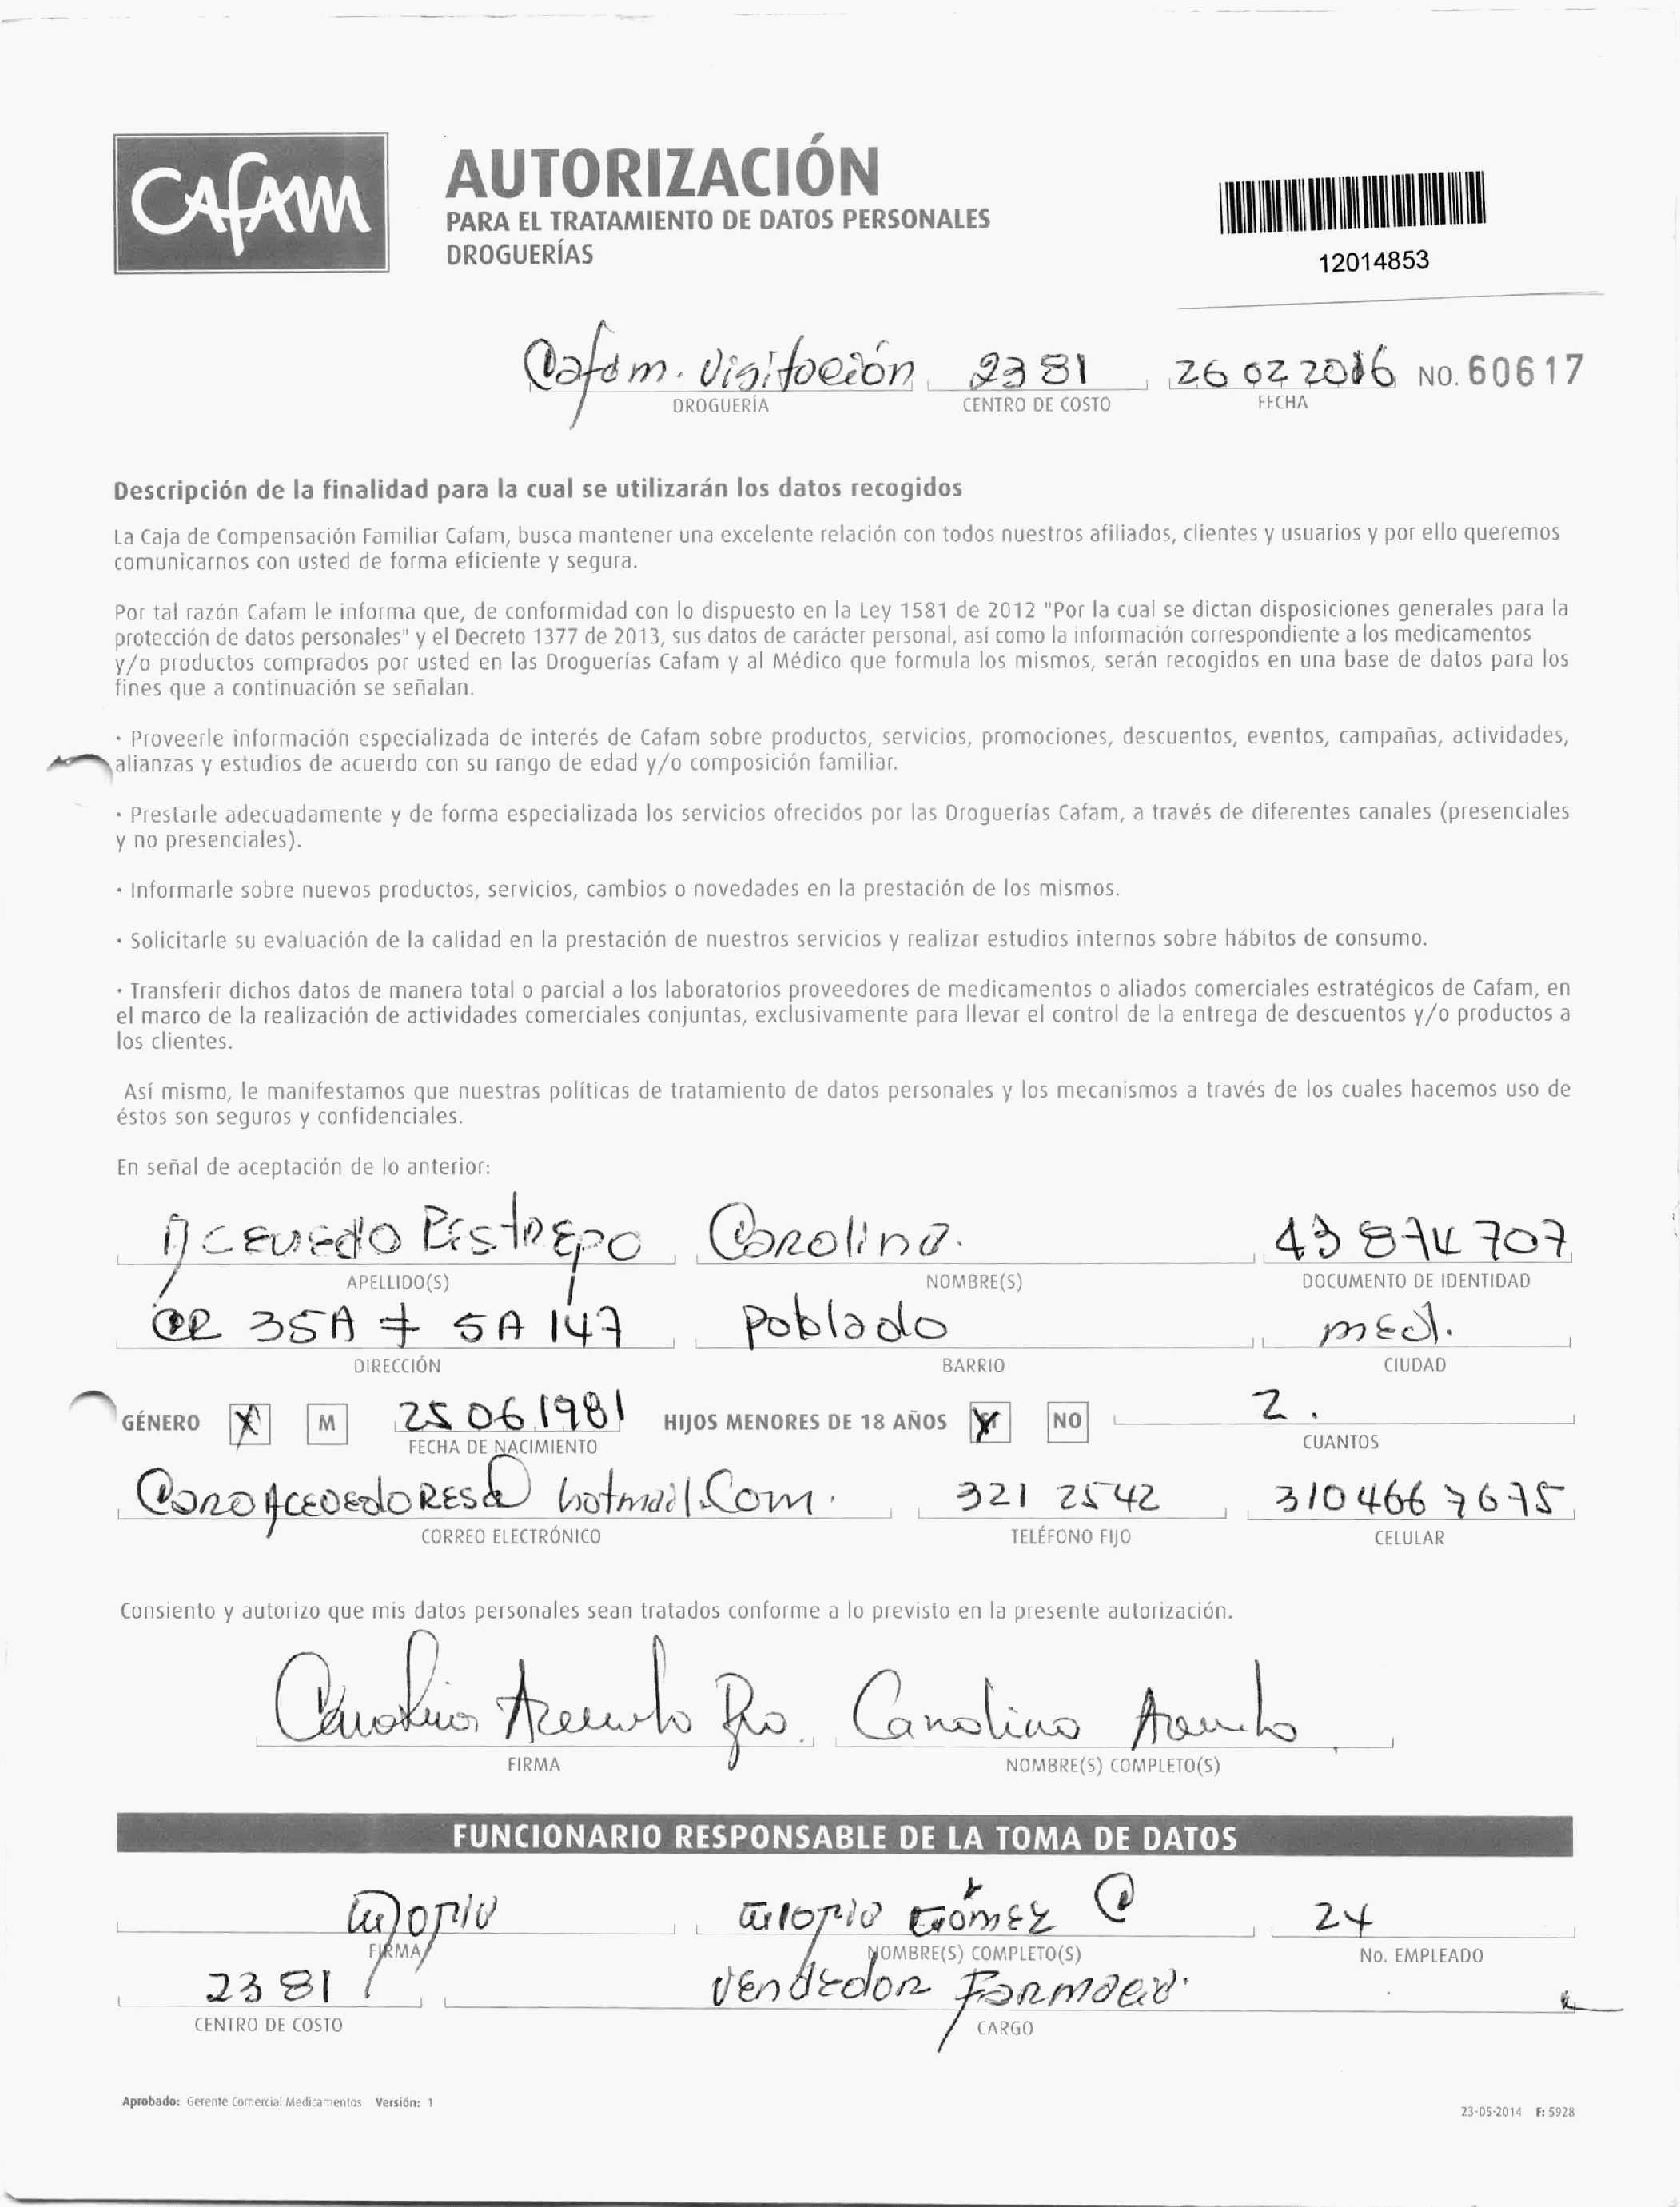 CAFAM
AUTORIZACIÓN
PARA EL TRATAMIENTO DE DATOS PERSONALES
DROGUERÍAS
12014853
Cafam. Visitación 2381 26 02 2016 NO. 60617
DROGUERÍA CENTRO DE COSTO FECHA
Descripción de la finalidad para la cual se utilizarán los datos recogidos
La Caja de Compensación Familiar Cafam, busca mantener una excelente relación con todos nuestros afiliados, clientes y usuarios y por ello queremos
comunicarnos con usted de forma eficiente y segura.
Por tal razón Cafam le informa que, de conformidad con lo dispuesto en la Ley 1581 de 2012 "Por la cual se dictan disposiciones generales para la
protección de datos personales" y el Decreto 1377 de 2013, sus datos de carácter personal, así como la información correspondiente a los medicamentos
y/o productos comprados por usted en las Droguerías Cafam y al Médico que formula los mismos, serán recogidos en una base de datos para los
fines que a continuación se señalan.
· Proveerle información especializada de interés de Cafam sobre productos, servicios, promociones, descuentos, eventos, campañas, actividades,
alianzas y estudios de acuerdo con su rango de edad y/o composición familiar.
· Prestarle adecuadamente y de forma especializada los servicios ofrecidos por las Droguerías Cafam, a través de diferentes canales (presenciales
y no presenciales).
· Informarle sobre nuevos productos, servicios, cambios o novedades en la prestación de los mismos.
· Solicitarle su evaluación de la calidad en la prestación de nuestros servicios y realizar estudios internos sobre hábitos de consumo.
· Transferir dichos datos de manera total o parcial a los laboratorios proveedores de medicamentos o aliados comerciales estratégicos de Cafam, en
el marco de la realización de actividades comerciales conjuntas, exclusivamente para llevar el control de la entrega de descuentos y/o productos a
los clientes.
Así mismo, le manifestamos que nuestras políticas de tratamiento de datos personales y los mecanismos a través de los cuales hacemos uso de
éstos son seguros y confidenciales.
En señal de aceptación de lo anterior:
Acevedo Restrepo Carolina. 43 874 707
APELLIDO(S) NOMBRE(S) DOCUMENTO DE IDENTIDAD
CR 35A # 5A 147 Poblado med.
DIRECCIÓN BARRIO CIUDAD
GÉNERO X M 25 06 1981 HIJOS MENORES DE 18 AÑOS X NO 2.
FECHA DE NACIMIENTO CUANTOS
CaroAcevedoRes@hotmail.Com. 321 2542 310 466 7675
CORREO ELECTRÓNICO TELÉFONO FIJO CELULAR
Consiento y autorizo que mis datos personales sean tratados conforme a lo previsto en la presente autorización.
Carolina Acevedo Rpo. Carolina Acevedo
FIRMA NOMBRE(S) COMPLETO(S)
FUNCIONARIO RESPONSABLE DE LA TOMA DE DATOS
Gómez 24
FIRMA NOMBRE(S) COMPLETO(S) No. EMPLEADO
2381 Vendedor Farmacia.
CENTRO DE COSTO CARGO
Aprobado: Gerente Comercial Medicamentos Versión: 1
23-05-2014 F: 5928